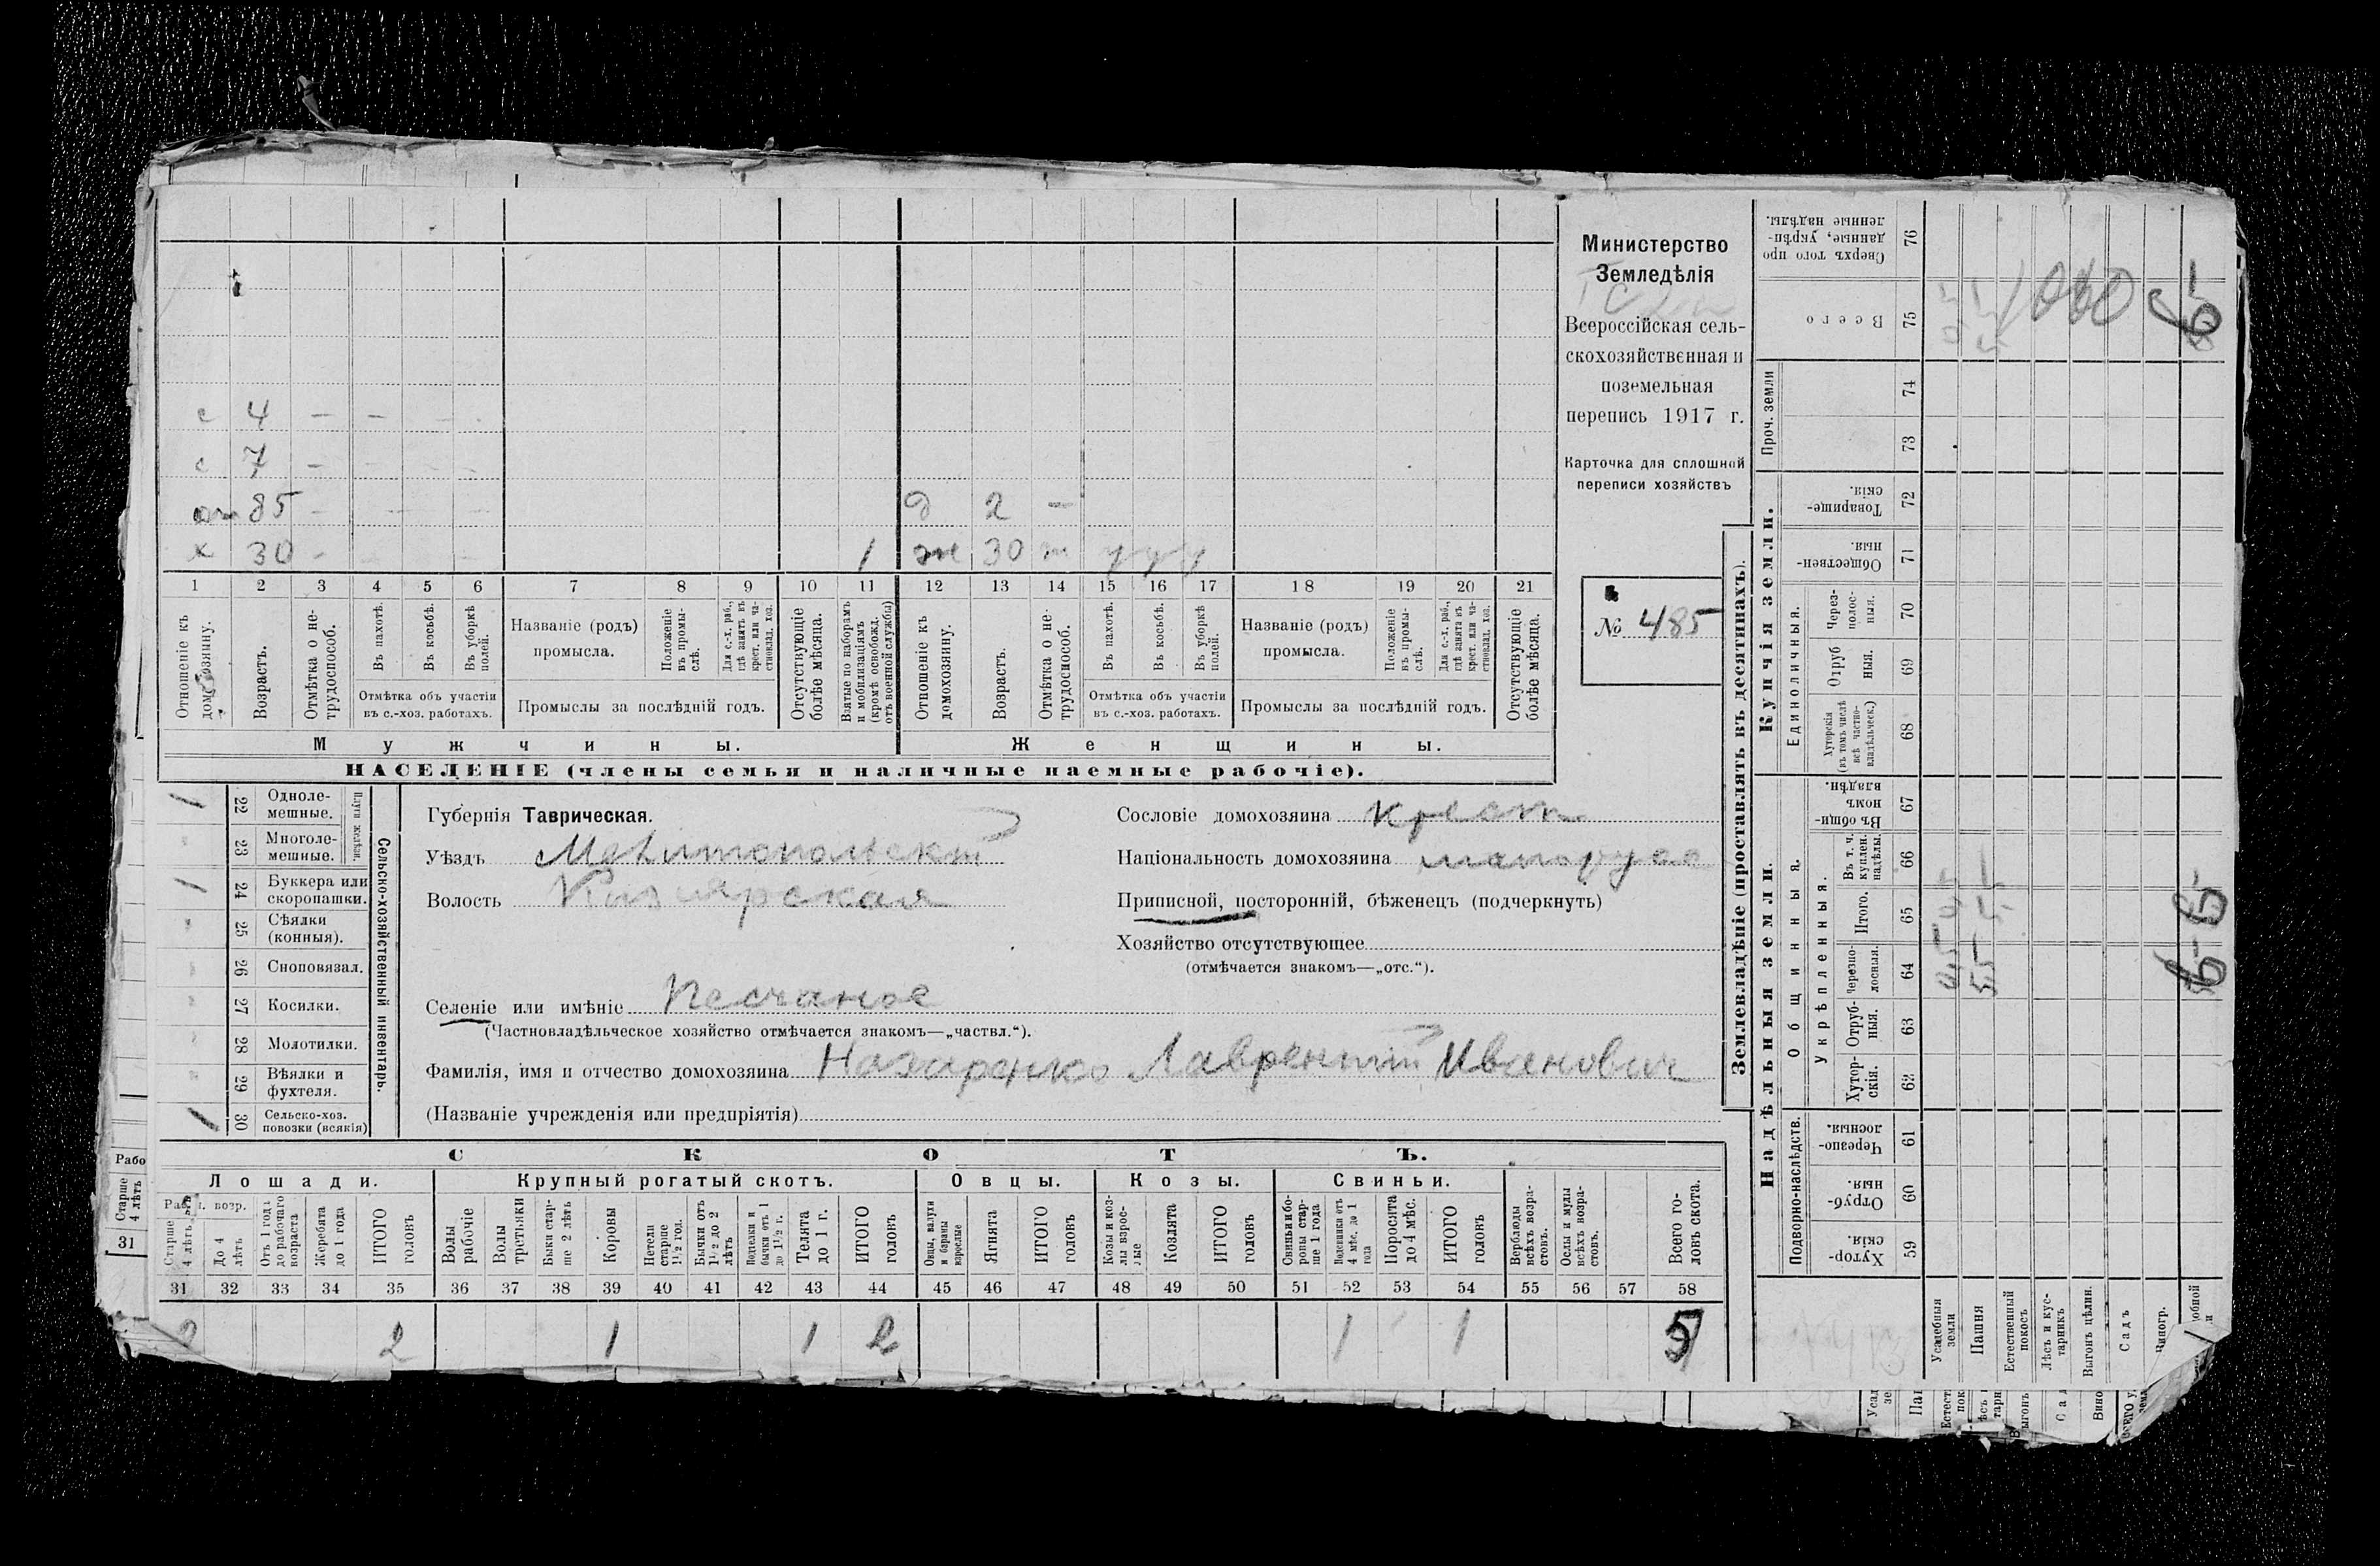 Министерство
Земледѣлія
Всероссійская сель-
скохозяйственная и
поземельная
перепись 1917 г.
Карточка для сплошной
переписи хозяйствъ
№ 485
с 4 — —
с 7 —
от 85 —
д 2 —
х 30 -
1 ж 30
1 2 3 4 5 6 7 8 9 10 11 12 13 14 15 16 17 18 19 20 21
Отношеніе къ домохозяину.
Возрастъ.
Отмѣтка о не-трудоспособ.
Въ пахотѣ.
Въ косьбѣ.
Въ уборкѣ полей.
Отмѣтка объ участіи
въ с.-хоз. работахъ.
Названіе (родъ)
промысла.
Положеніе въ промы-слѣ.
Для с.-х. раб., гдѣ занятъ въ крест. или ча-стновлад. хоз.
Промыслы за послѣдній годъ.
Отсутствующіе болѣе мѣсяца.
Взятые по наборамъ и мобилизаціямъ (кромѣ освобожд. отъ военной службы)
Отношеніе къ домохозяину.
Возрастъ.
Отмѣтка о не-трудоспособ.
Въ пахотѣ.
Въ косьбѣ.
Въ уборкѣ полей.
Отмѣтка объ участіи
въ с.-хоз. работахъ.
Названіе (родъ)
промысла.
Положеніе въ промы-слѣ.
Для с.-х. раб., гдѣ занята въ крест. или ча-стновлад. хоз.
Промыслы за послѣдній годъ.
Отсутствующіе болѣе мѣсяца.
Мужчины.
Женщины.
НАСЕЛЕНІЕ (члены семьи и наличные наемные рабочіе).
Сельско-хозяйственный инвентарь.
Плуги желѣзн.
1 22 Одноле-мешные.
23 Многоле-мешные.
1 24 Буккера или скоропашки.
25 Сѣялки (конныя).
26 Сноповязал.
27 Косилки.
28 Молотилки.
29 Вѣялки и фухтеля.
1 30 Сельско-хоз. повозки (всякія)
Губернія Таврическая.
Уѣздъ Мелитопольскій
Волость Кизіярская
Селеніе или имѣніе Песчаное
(Частновладѣльческое хозяйство отмѣчается знакомъ—„частвл.“).
Фамилія, имя и отчество домохозяина Назаренко Лаврентій Иванович
(Названіе учрежденія или предпріятія)
Сословіе домохозяина крест
Національность домохозяина малорусс
Приписной, посторонній, бѣженецъ (подчеркнуть)
Хозяйство отсутствующее
(отмѣчается знакомъ—„отс.“).
СКОТЪ.
Лошади.
Крупный рогатый скотъ.
Овцы.
Козы.
Свиньи.
Старше 4 лѣтъ
До 4 лѣтъ
Отъ 1 года до рабочаго возраста
Жеребята до 1 года
ИТОГО головъ
Волы рабочіе
Волы третьяки
Быки стар-ше 2 лѣтъ
Коровы
Нетели старше 1½ год.
Бычки отъ 1½ до 2 лѣтъ
Подтелки и бычки отъ 1 до 1½ г.
Телята до 1 г.
ИТОГО головъ
Овцы, валухи и бараны взрослые
Ягнята
ИТОГО головъ
Козы и коз-лы взрос-лые
Козлята
ИТОГО головъ
Свиньи и бо-ровы стар-ше 1 года
Подсвинки отъ 4 мѣс. до 1 года
Поросята до 4 мѣс.
ИТОГО головъ
Верблюды всѣхъ возра-стовъ.
Ослы и мулы всѣхъ возра-стовъ.
Всего го-ловъ скота.
31 32 33 34 35 36 37 38 39 40 41 42 43 44 45 46 47 48 49 50 51 52 53 54 55 56 57 58
2 2 1 1 2 1 1 5
Рабо
Старше 4 лѣтъ
31
Землевладѣніе (проставлять въ десятинахъ).
Купчія земли.
Надѣльныя земли.
Проч. земли
Единоличныя.
Общинныя.
Укрѣпленныя.
Подворно-наслѣдств.
Сверхъ того про данные, укрѣп-ленные надѣлы. 76
Всего 75
74
73
Товарище-скія. 72
Обществен-ныя. 71
Через-полос-ныя. 70
Отруб ныя. 69
Хуторскія (въ томъ числѣ всѣ частно-владѣльческ.) 68
Въ общи-номъ владѣн. 67
Въ т. ч. куплен. надѣлы. 66
Итого. 65
Черезпо-лосныя. 64
Отруб-ныя. 63
Хутор-скія. 62
Черезпо-лосныя. 61
Отруб-ныя. 60
Хутор-скія. 59
Усадебныя земли
Пашня
Естественный покосъ
Лѣсъ и кус-тарникъ
Выгонъ цѣлин.
Садъ